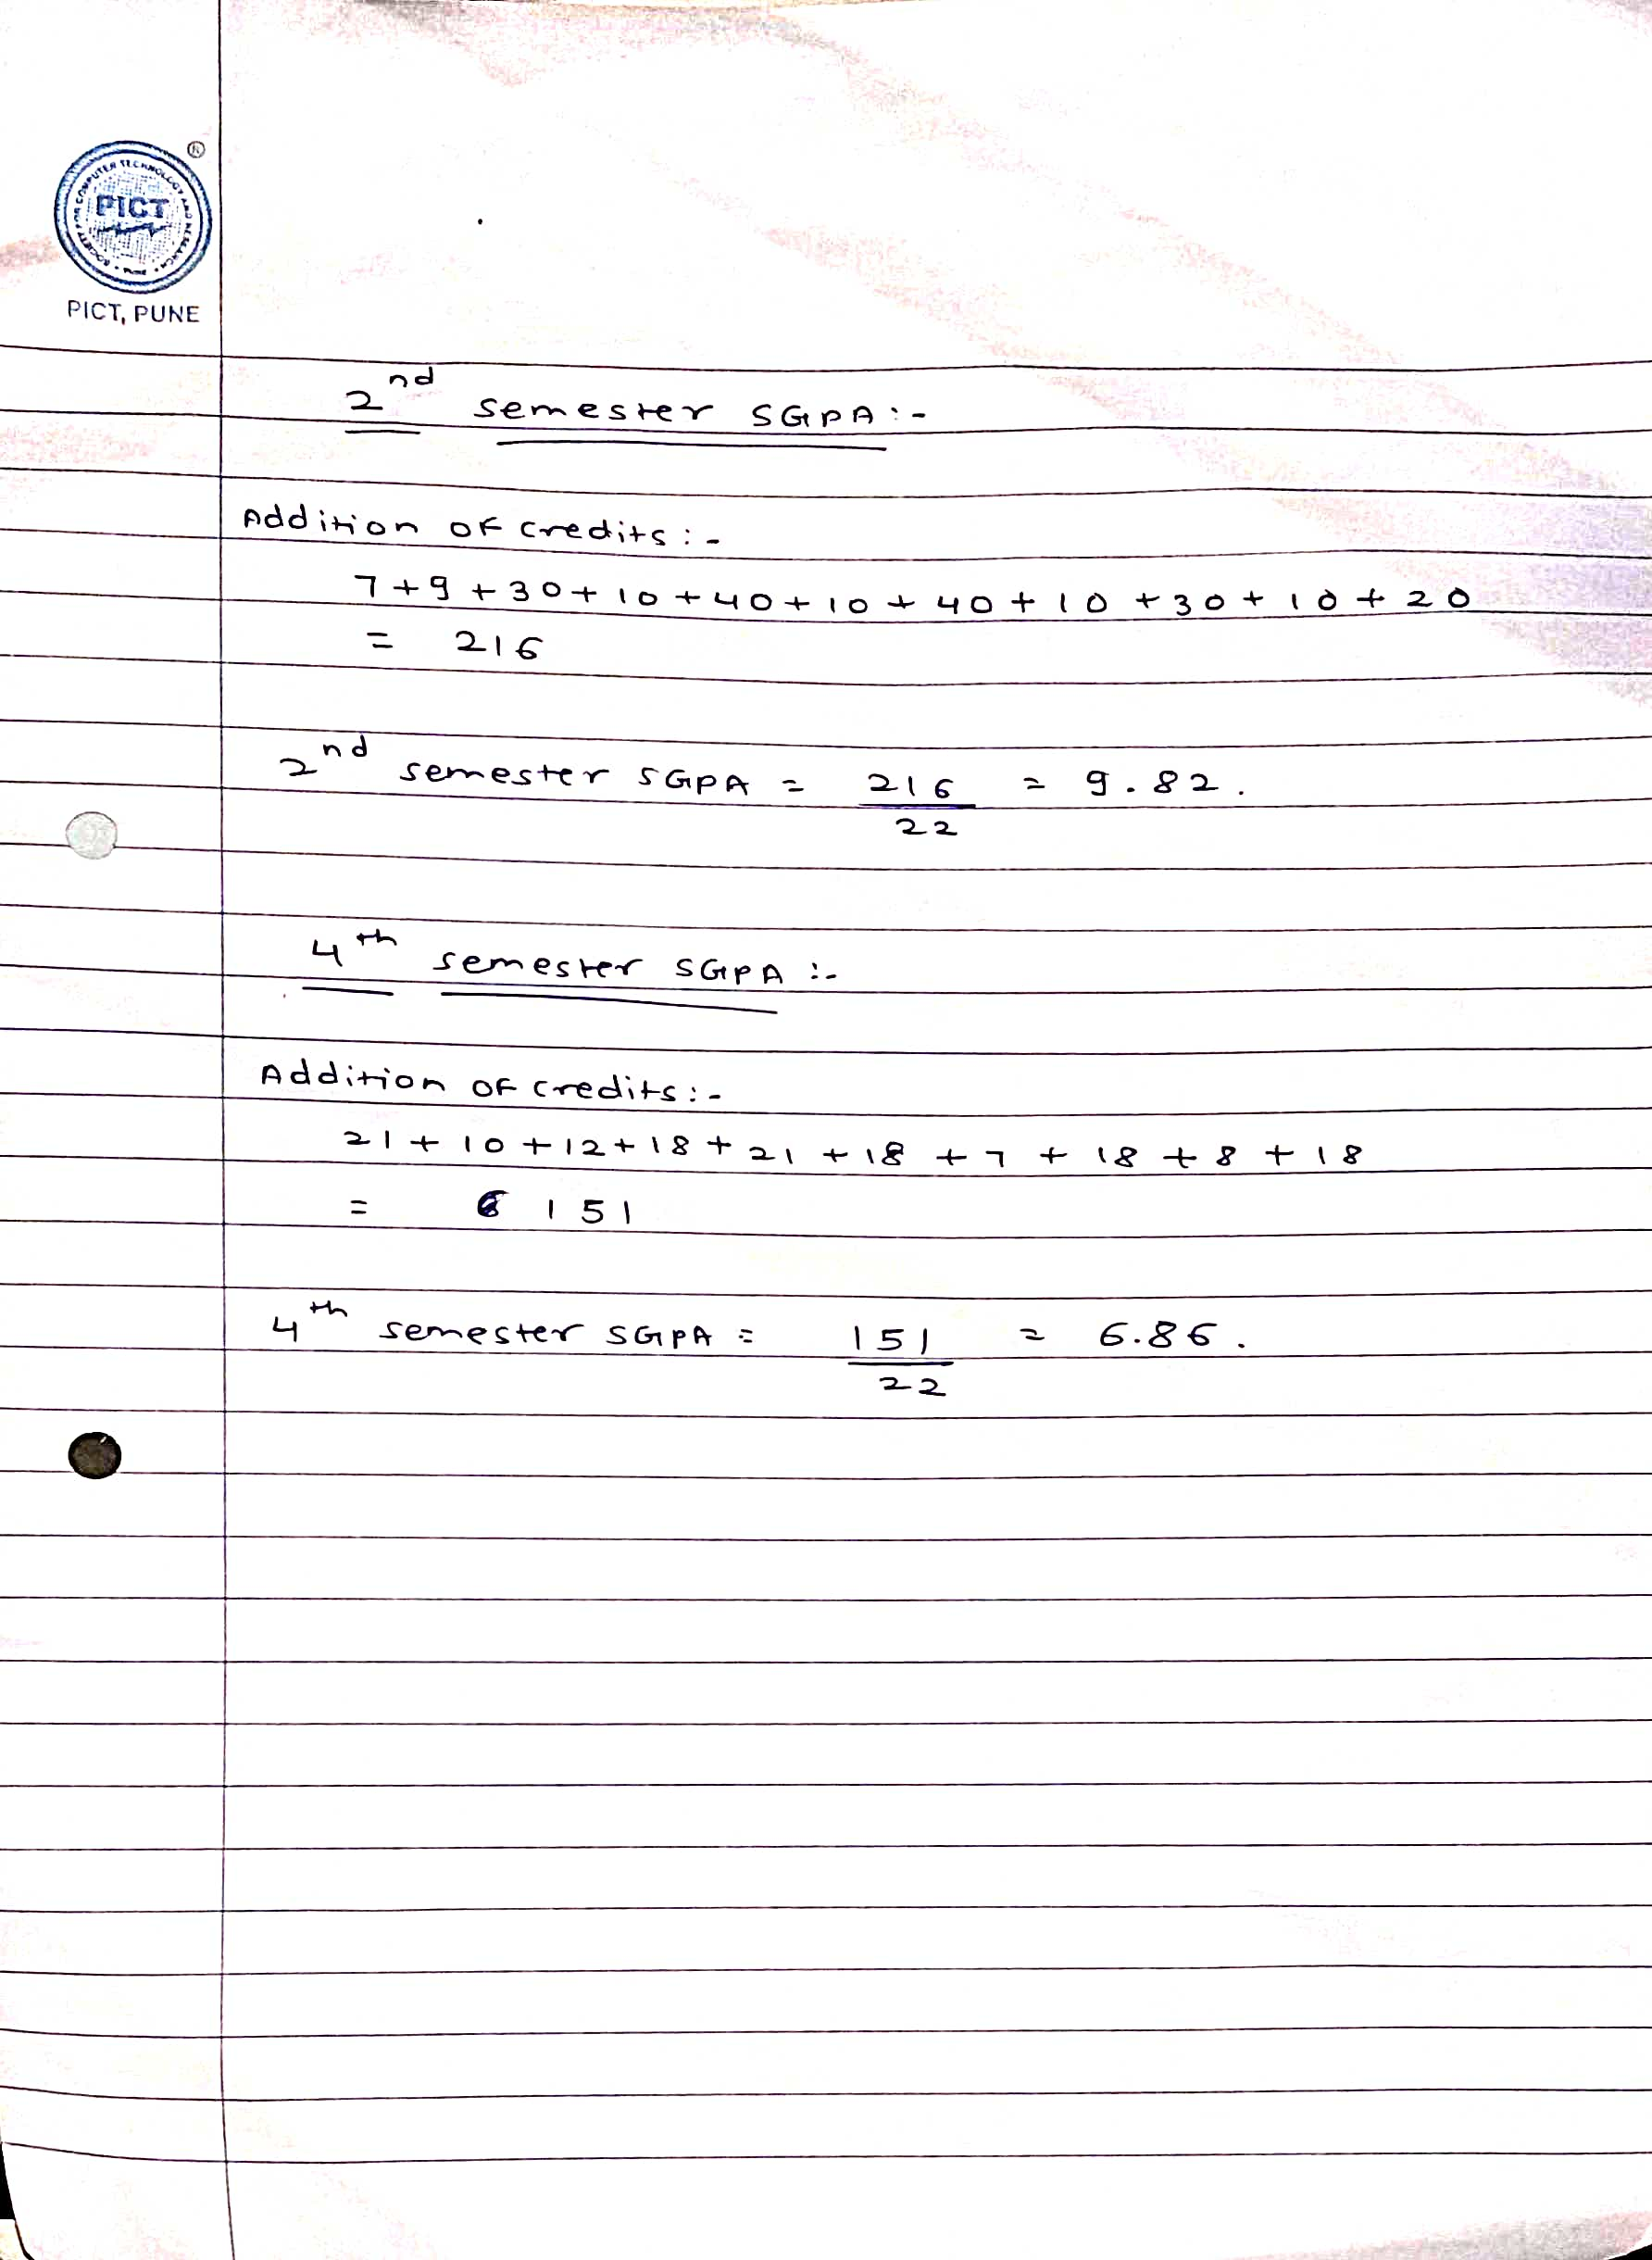 ®
SOCIETY FOR COMPUTER TECHNOLOGY AND RESEARCH
PICT
PUNE
PICT, PUNE
2nd semester SGPA :-
Addition of credits :-
7 + 9 + 30 + 10 + 40 + 10 + 40 + 10 + 30 + 10 + 20
= 216
2nd semester SGPA = 216 = 9.82.
22
4th semester SGPA :-
Addition of credits :-
21 + 10 + 12 + 18 + 21 + 18 + 7 + 18 + 8 + 18
= 151
4th semester SGPA = 151 = 6.86.
22